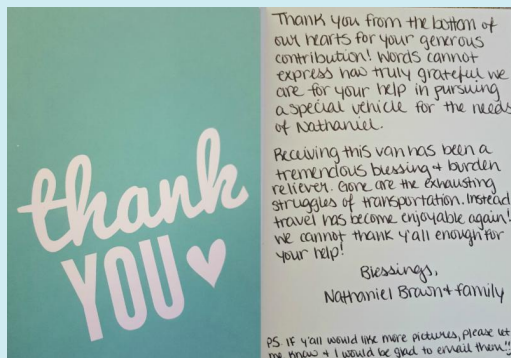 thank
YOU
Thank you from the bottom of
our hearts for your generous
contribution! Words cannot
express how truly grateful we
are for your help in pursuing
a special vehicle for the needs
of Nathaniel.
Receiving this van has been a
tremendous blessing + burden
reliever. Gone are the exhausting
struggles of transportation. Instead
travel has become enjoyable again!
We cannot thank y'all enough for
your help!
Blessings,
Nathaniel Brown + family
PS. If y'all would like more pictures, please let
me know + I would be glad to email them!!